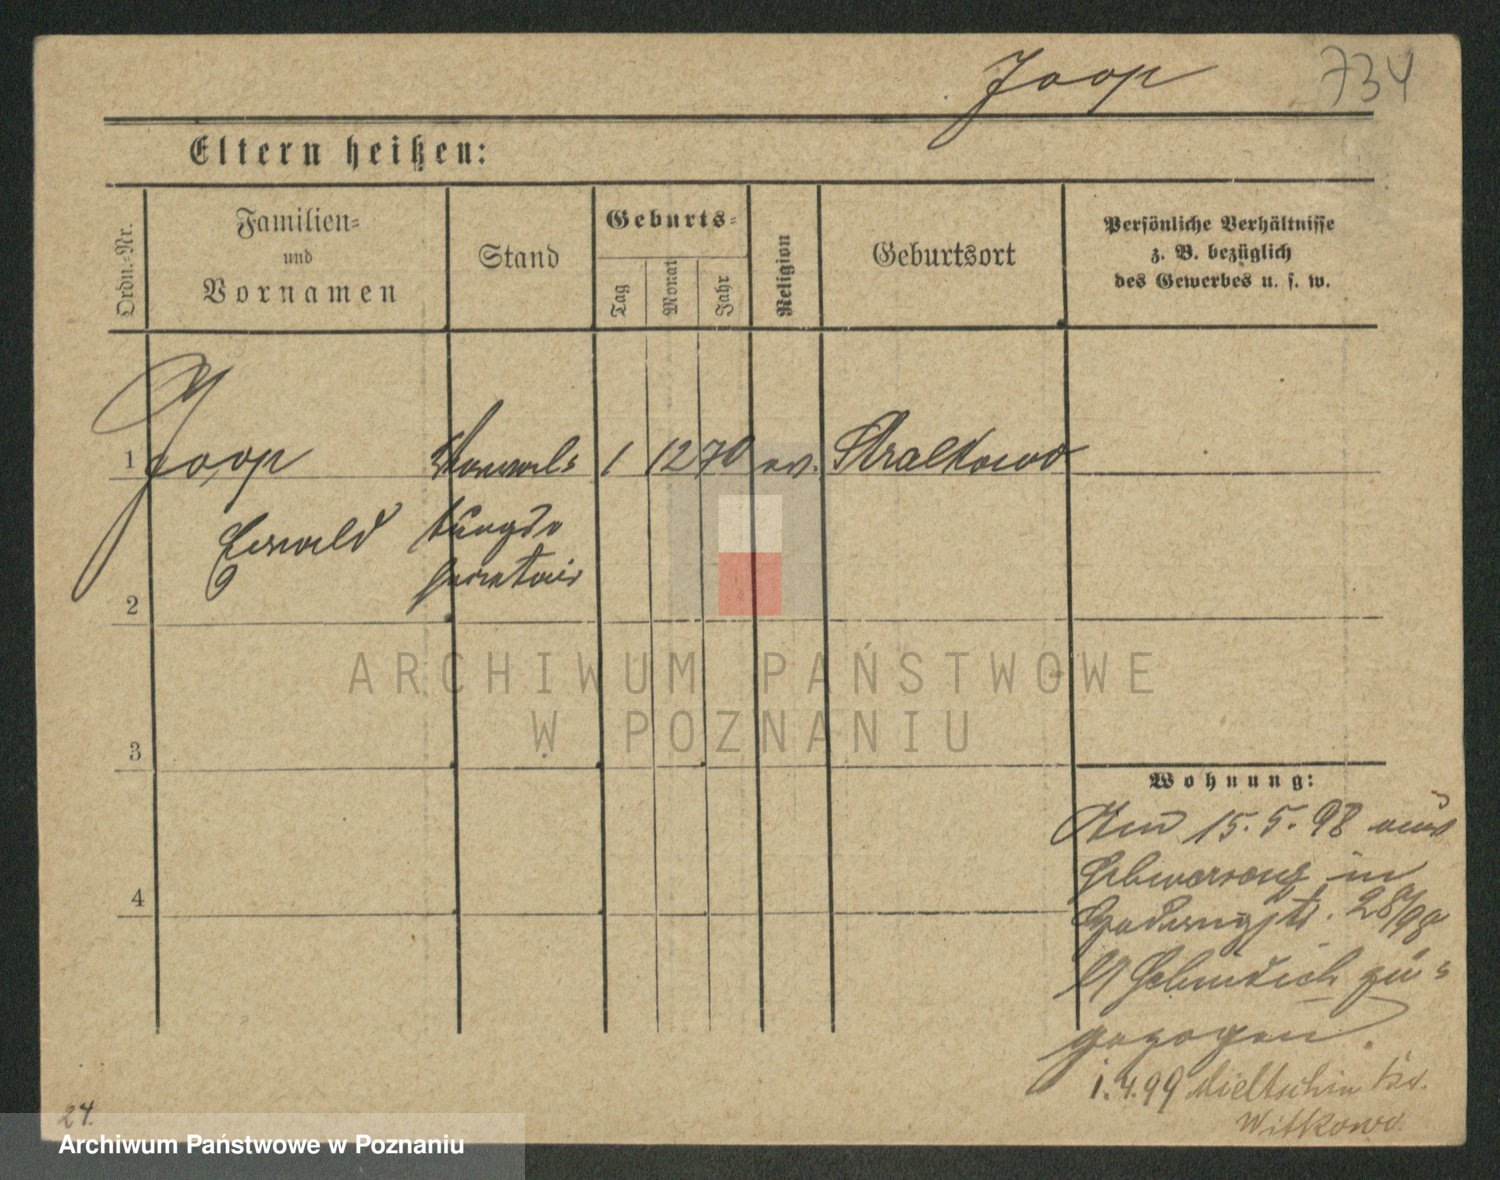 Joop 734
Eltern heißen:
Ordn.-Nr.
Familien-
und
Vornamen
Stand
Geburts-
Tag
Monat
Jahr
Religion
Geburtsort
Persönliche Verhältnisse
z. B. bezüglich
des Gewerbes u. s. w.
1 Joop 1 12 70 ev. Stralkowo
Ewald
tungs
secretair
2
3
4
ARCHIWUM PAŃSTWOWE
W POZNANIU
Wohnung:
15.5.98 aus
in
28/98
zu-
gezogen.
1.4.99 Mieltschin Kr.
Witkowo
24.
Archiwum Państwowe w Poznaniu